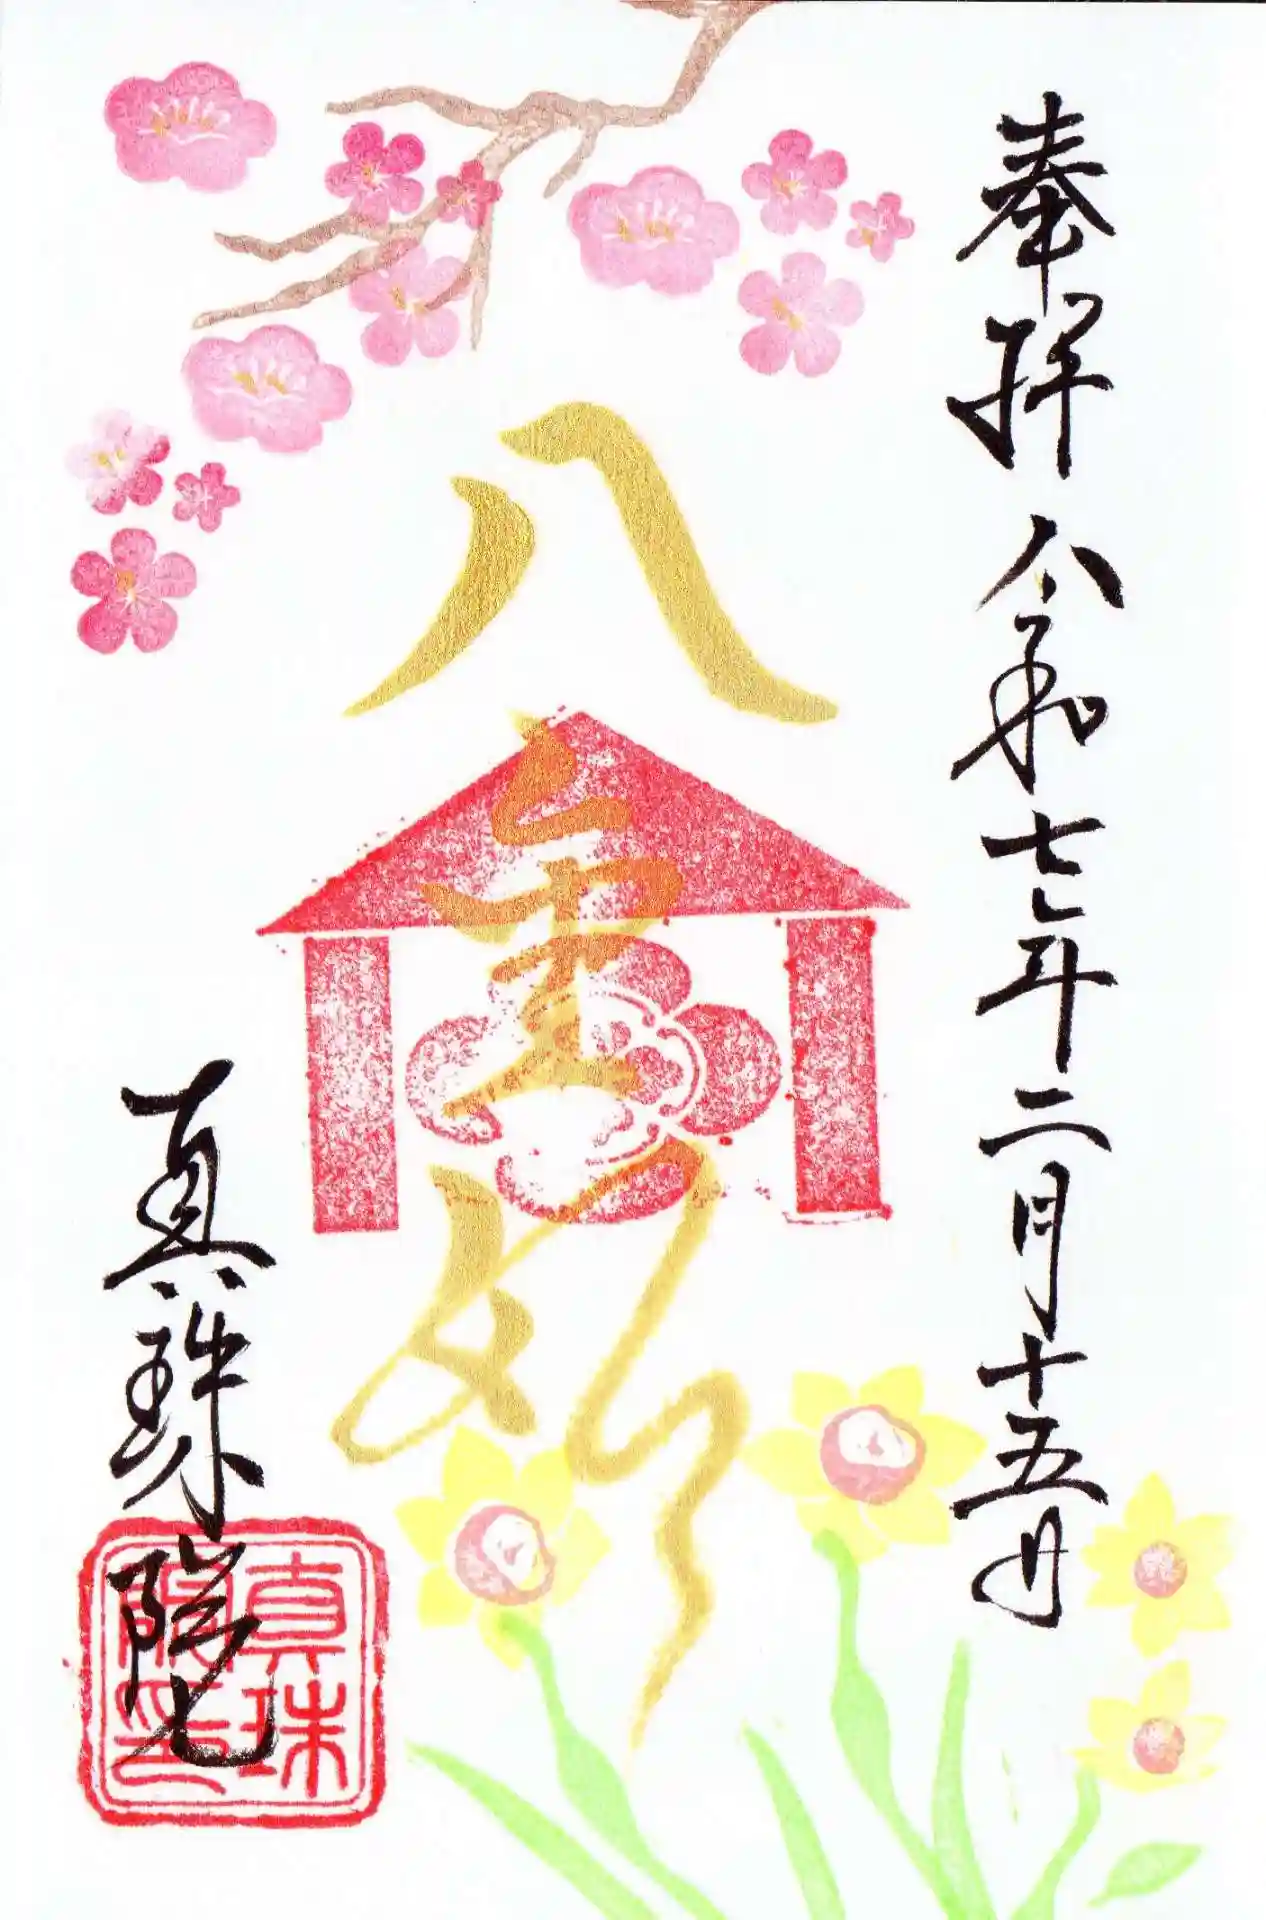 奉拝 令和七年二月十五日
八重姫
真珠院
真珠院印